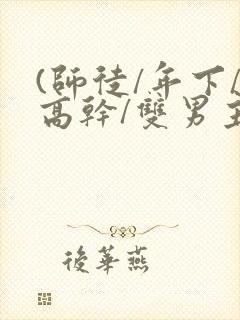 (師徒/年下/
高幹/雙男主
後華燕